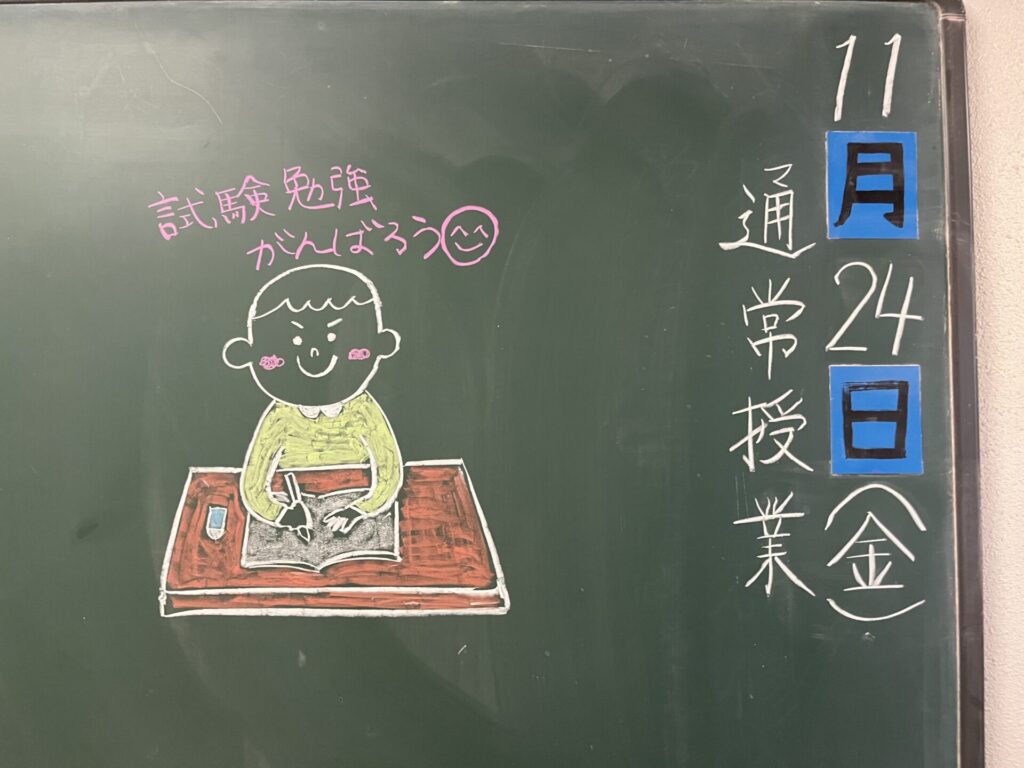 11月24日(金)
通常授業
試験勉強
がんばろう